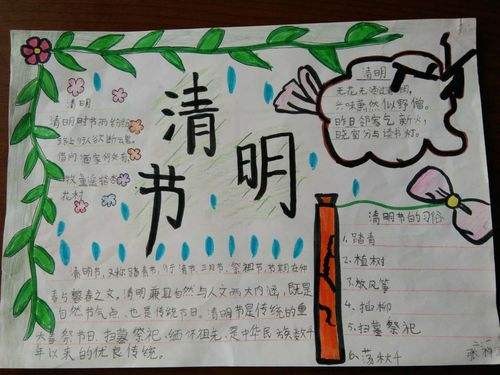 清明节
清明
清明时节雨纷纷
路上行人欲断魂
借问酒家何处有
牧童遥指杏
花村
清明
无花无酒过清明,
兴味萧然似野僧。
昨日邻家乞新火,
晓窗分与读书灯。
清明节的习俗
1、踏青
2、植树
3、放风筝
4、插柳
5、扫墓祭祀
6、荡秋千
清明节,又称踏青节、行清节、三月节、祭祖节,节期在仲
春与暮春之交。清明兼具自然与人文两大内涵,既是
自然节气点,也是传统节日。清明节是传统的重
大春祭节日,扫墓祭祀、缅怀祖先,是中华民族数千
年以来的优良传统。